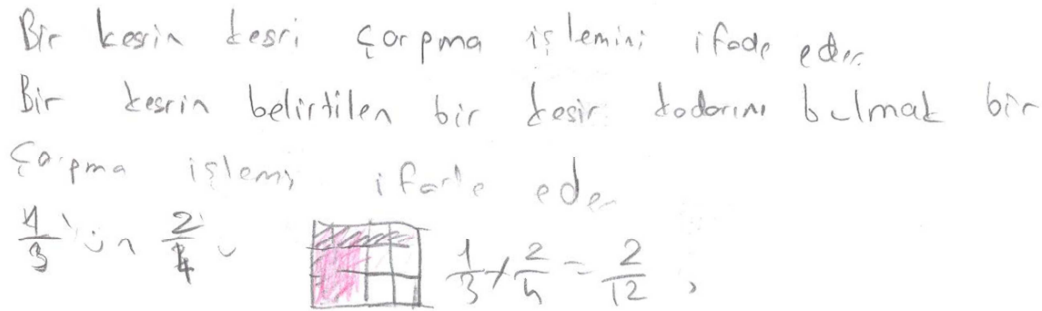 Bir kesrin kesri çarpma işlemini ifade eder.
Bir kesrin belirtilen bir kesir kadarını bulmak bir
çarpma işlemi ifade eder
4/3 'ün 2/4 ü 1/3 × 2/4 = 2/12,